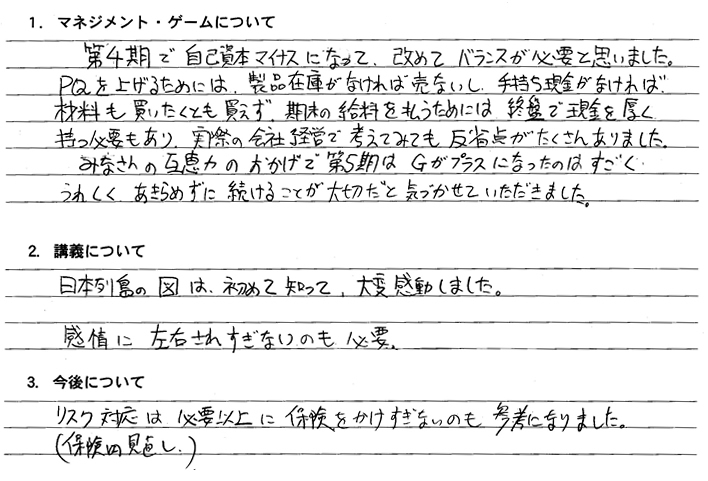 1. マネジメント・ゲームについて
第4期で自己資本マイナスになって、改めてバランスが必要と思いました。
PQを上げるためには、製品在庫がなければ売ないし、手持ち現金がなければ
材料も買いたくとも買えず、期末の給料を払うためには終盤で現金を厚く
持つ必要もあり、実際の会社経営で考えてみても反省点がたくさんありました。
みなさんの互恵力のおかげで第5期はGがプラスになったのはすごく
うれしく、あきらめずに続けることが大切だと気づかせていただきました。
2. 講義について
日本列島の図は、初めて知って、大変感動しました。
感情に左右されすぎないのも必要。
3. 今後について
リスク対応は必要以上に保険をかけすぎないのも参考になりました。
(保険の見直し。)